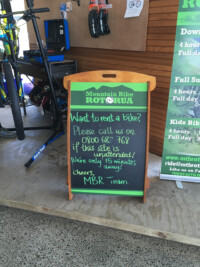 Mountain Bike
ROTORUA
Want to rent a bike?
Please call us on
0800 682 768
if this site is
unattended!
We're only 15 minutes
away!
Cheers,
MBR Team
RO
Down
4 hours
Full d
Full Su
4 hours
Full day
Kids Bi
4 hours
Full day
www.mtbrot
ride@mtbrot